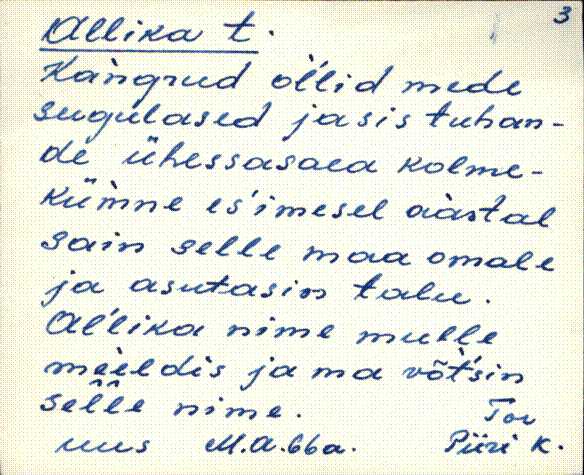 3
Allika t.
Kàngrud ol'lid mede
sugulased ja sis tuhan-
de ühessasaea kolme-
küm̀ne es'imesel aàstal
sain selle maa omale
ja asutasin talu.
Al'lika nime mulle
meèldis ja ma võt̀'sin
sel̂l̂e nime.
Tor
uus M.A. 66a. Piiri k.